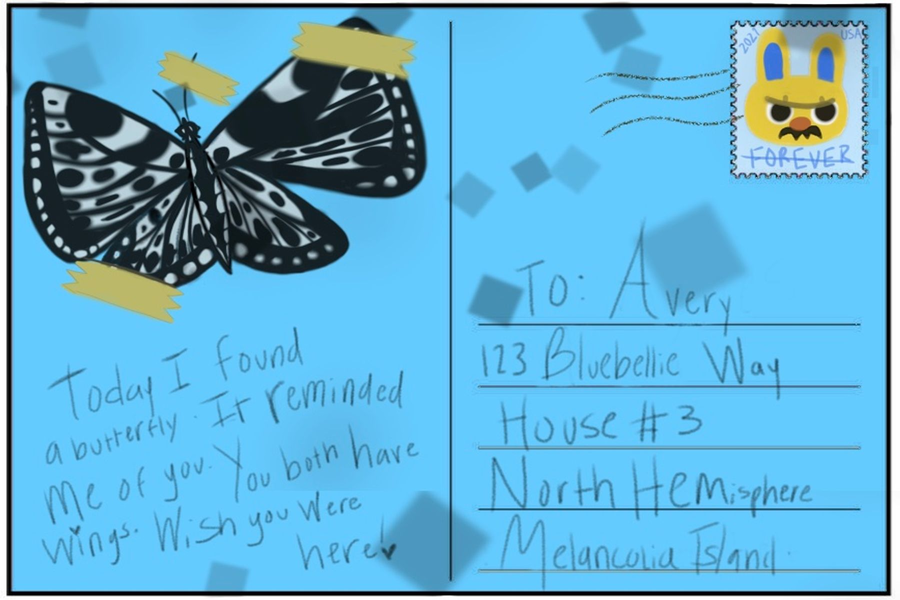 Today I found
a butterfly. It reminded
me of you. You both have
wings. Wish you were
here!
2021 USA
FOREVER
To: Avery
123 Bluebellie Way
House #3
North Hemisphere
Melancolia Island.